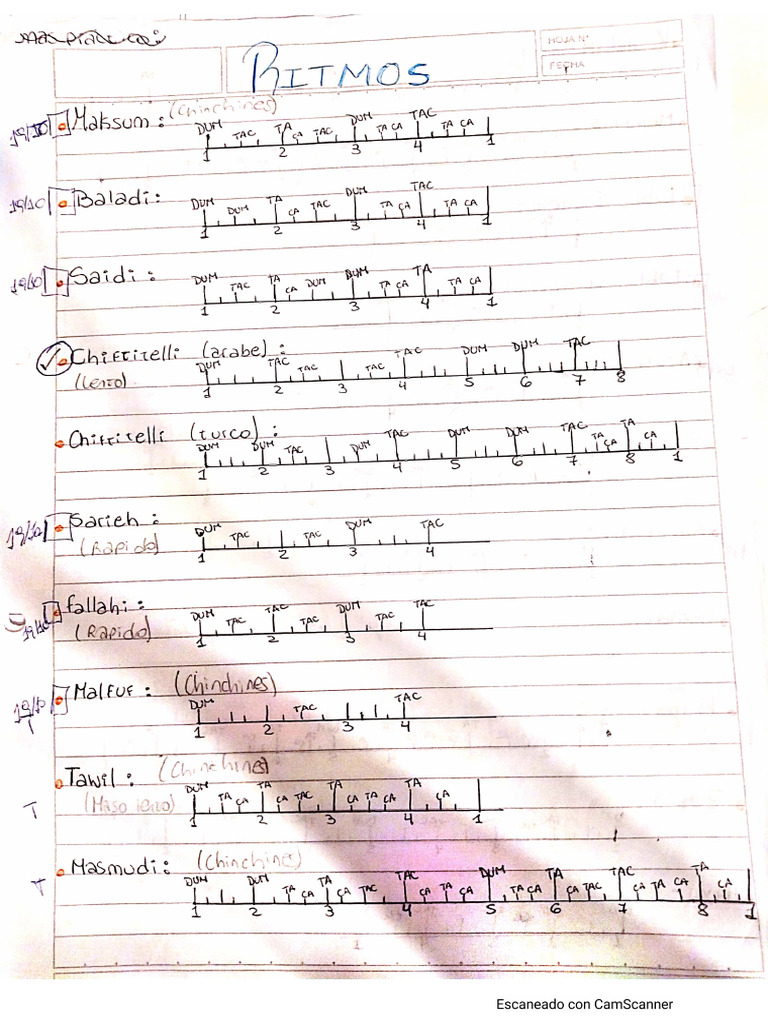 HOJA N°
FECHA
RITMOS
19/10 Maksum: (Chinchines) DUM TAC TA CA TAC DUM TA CA TAC TA CA
1 2 3 4 1
19/10 Baladi: DUM DUM TA CA TAC DUM TA CA TAC TA CA
1 2 3 4 1
19/10 Saidi: DUM TAC TA CA DUM DUM TA CA TA TA CA
1 2 3 4 1
Chiftitelli (arabe): DUM TAC TAC TAC TAC DUM DUM TAC
(Lento) 1 2 3 4 5 6 7 8
Chiftitelli (turco): DUM DUM TAC DUM TAC DUM DUM TAC TA CA TA CA
1 2 3 4 5 6 7 8 1
19/10 Sarieh: DUM TAC TAC DUM TAC
(Rapido) 1 2 3 4
19/10 fallahi: DUM TAC TAC TAC DUM TAC TAC
(Rapido) 1 2 3 4
19/10 Malfuf: (Chinchines) DUM TAC TAC
1 2 3 4
Tawil: (Chinchines) DUM TA CA TA CA TAC TA CA TA CA TA CA
T (Maso lento) 1 2 3 4 1
Masmudi: (Chinchines) DUM DUM TA CA TA CA TAC TAC CA TA CA DUM TA CA TA CA TAC TAC CA TA CA TA CA
T 1 2 3 4 5 6 7 8 1
1
Escaneado con CamScanner